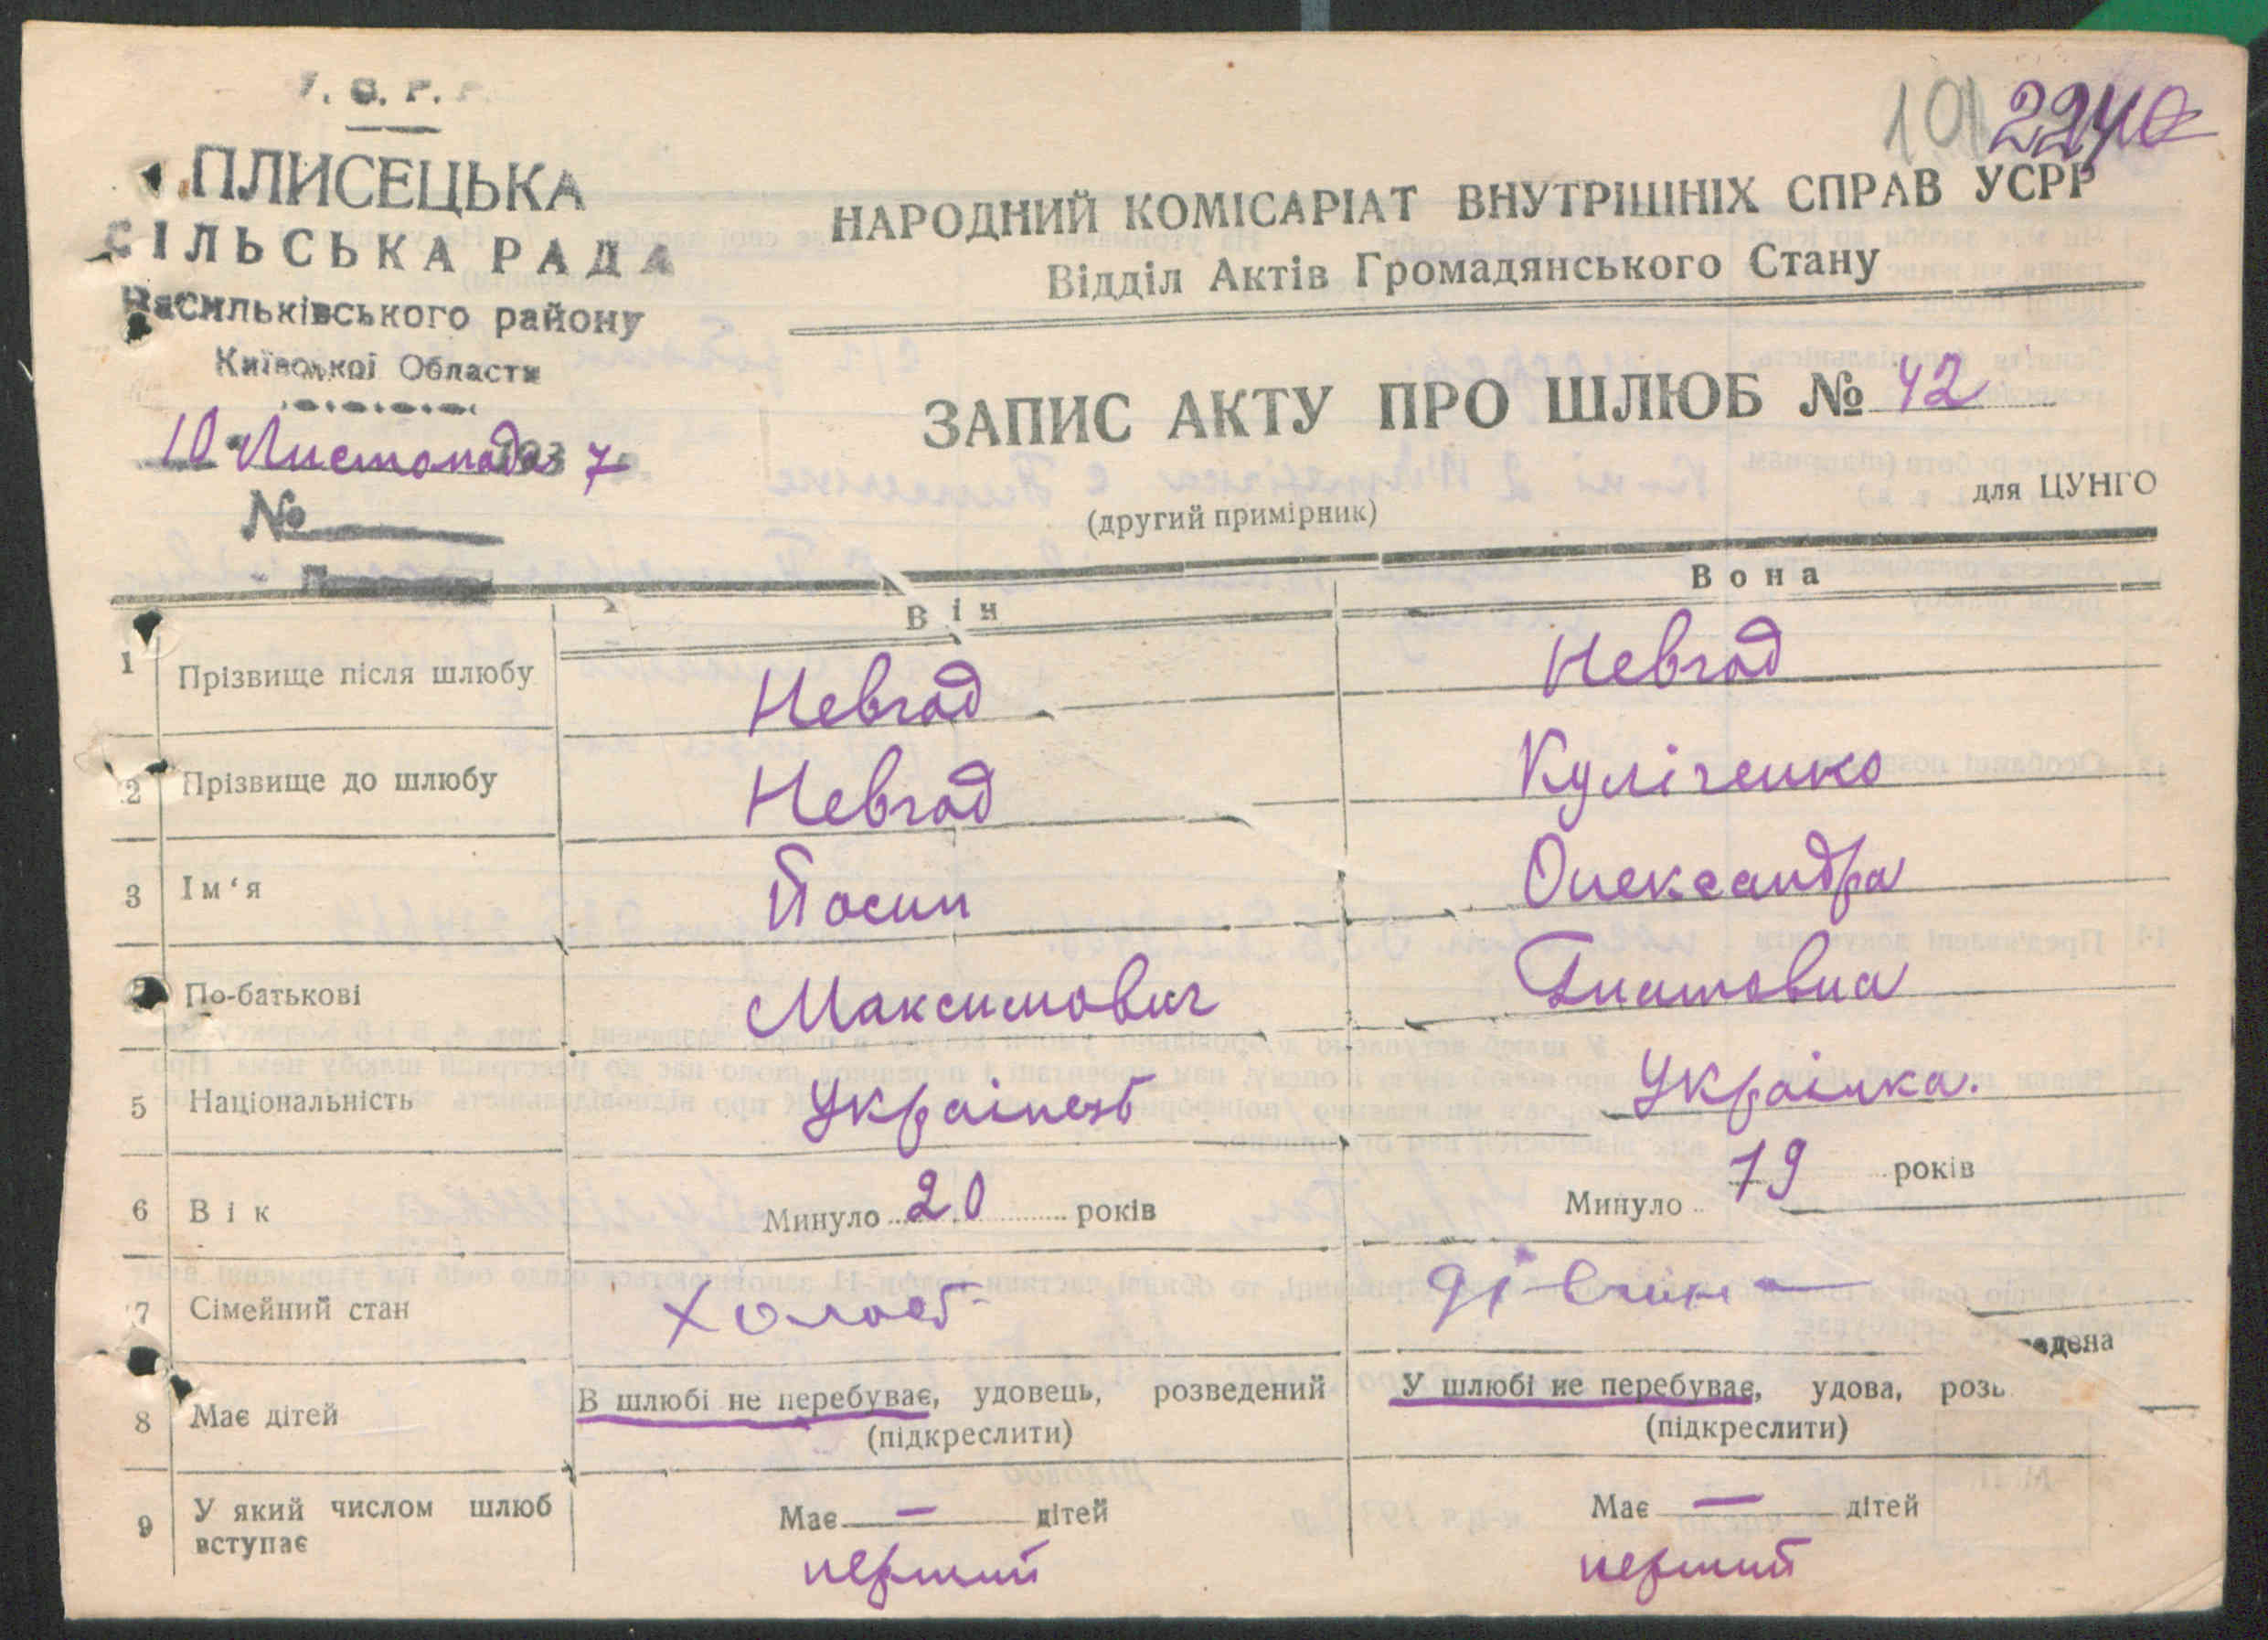 У. С. Р. Р.
ПЛИСЕЦЬКА
СІЛЬСЬКА РАДА
Васильківського району
Київської Области
10 Листопада 1937 р.
№
101 2240
НАРОДНИЙ КОМІСАРІАТ ВНУТРІШНІХ СПРАВ УСРР
Відділ Актів Громадянського Стану
ЗАПИС АКТУ ПРО ШЛЮБ № 42
(другий примірник)
для ЦУНГО
Він Вона
1 Прізвище після шлюбу Невгад Невгад
2 Прізвище до шлюбу Невгад Куліченко
3 Ім'я Йосип Олександра
По-батькові Максимович Гнатовна
5 Національність Українец Українка.
6 Вік Минуло 20 років Минуло 19 років
7 Сімейний стан Холост дівчина
8 Має дітей В шлюбі не перебуває, удовець, розведений У шлюбі не перебуває, удова, розведена
(підкреслити) (підкреслити)
9 У який числом шлюб вступає Має — дітей Має — дітей
перший перший